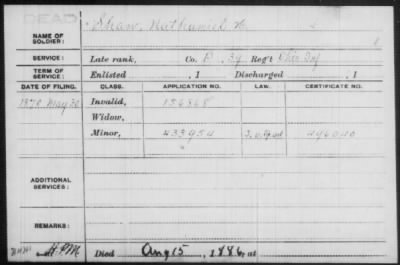 DEAD
NAME OF SOLDIER: Shaw, Nathaniel
SERVICE: Late rank, Co. B, 39 Reg't Ohio Inf
TERM OF SERVICE: Enlisted , 1 Discharged , 1
DATE OF FILING. CLASS. APPLICATION NO. LAW. CERTIFICATE NO.
May 30 Invalid,
Widow,
Minor, 433954 496040
ADDITIONAL SERVICES:
REMARKS:
Died Aug 15, 1886, at